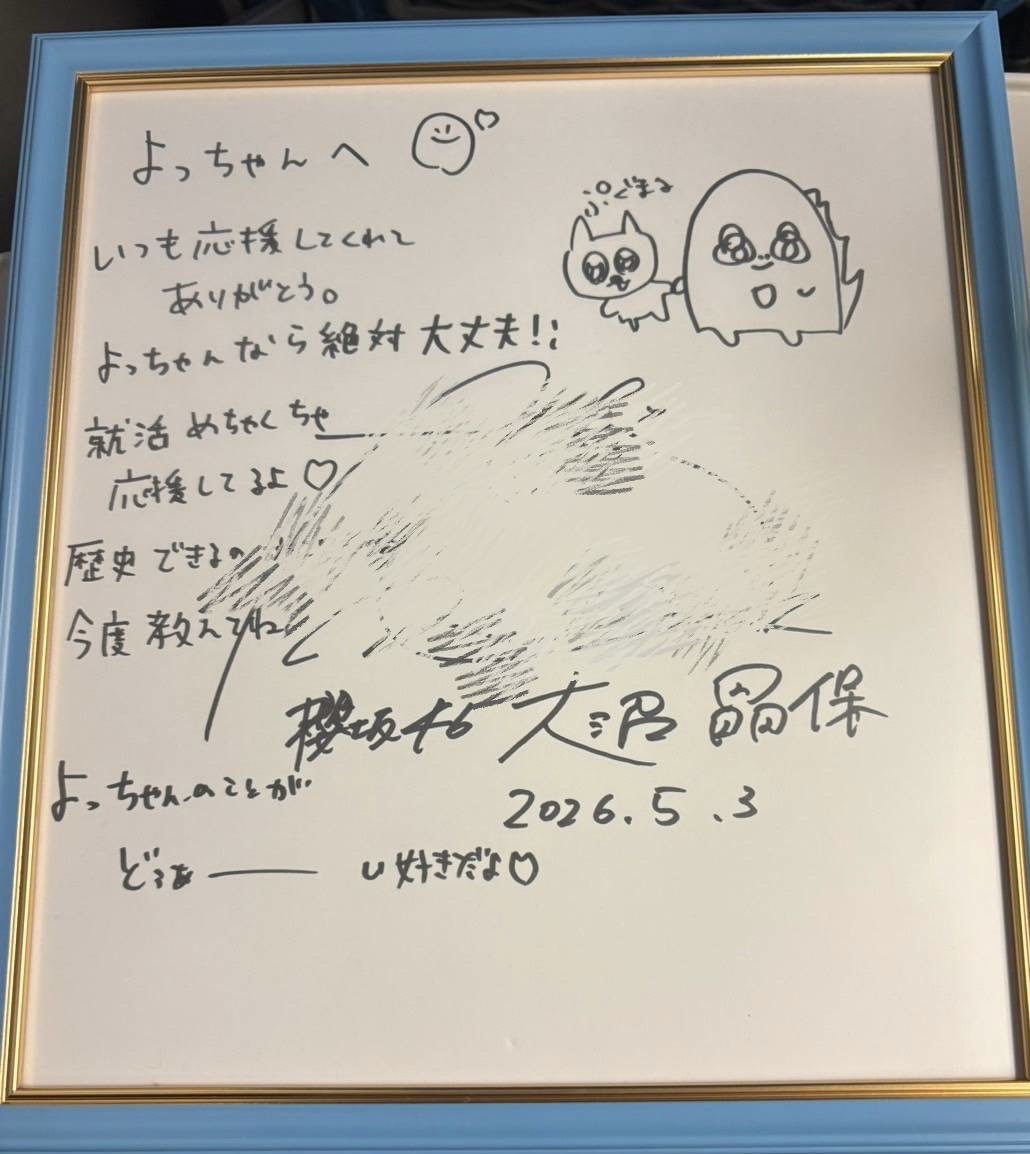 よっちゃんへ
ぷぐまる
いつも応援してくれて
ありがとう。
よっちゃんなら絶対大丈夫!!
就活めちゃくちゃ
応援してるよ♡
歴史できるの
今度教えてね
櫻坂46 大沼晶保
2026.5.3
よっちゃんのことが
どぅぁ——い好きだよ♡